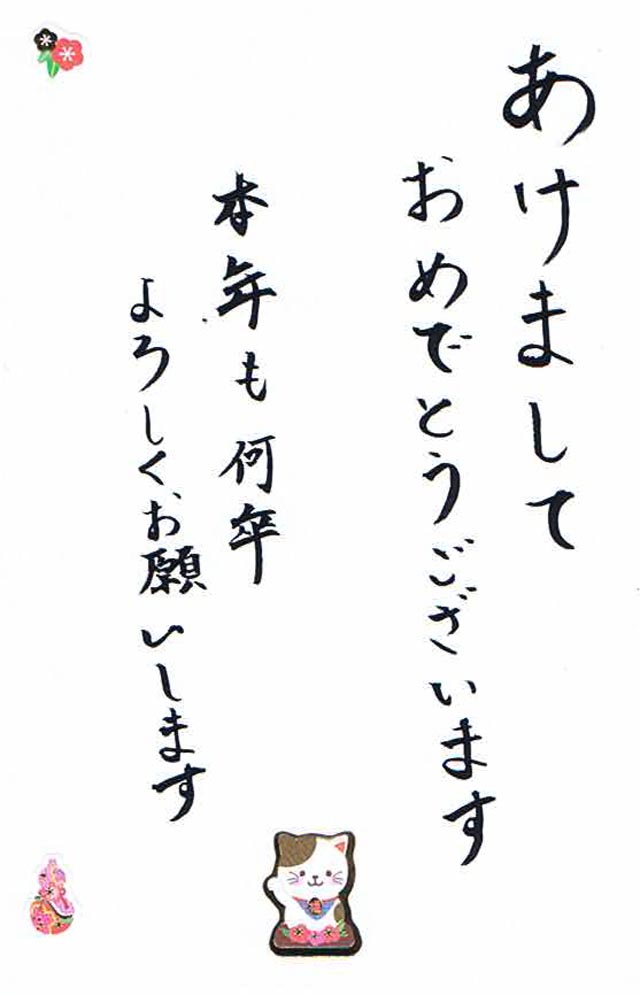 あけまして
おめでとうございます
本年も何卒
よろしくお願いします